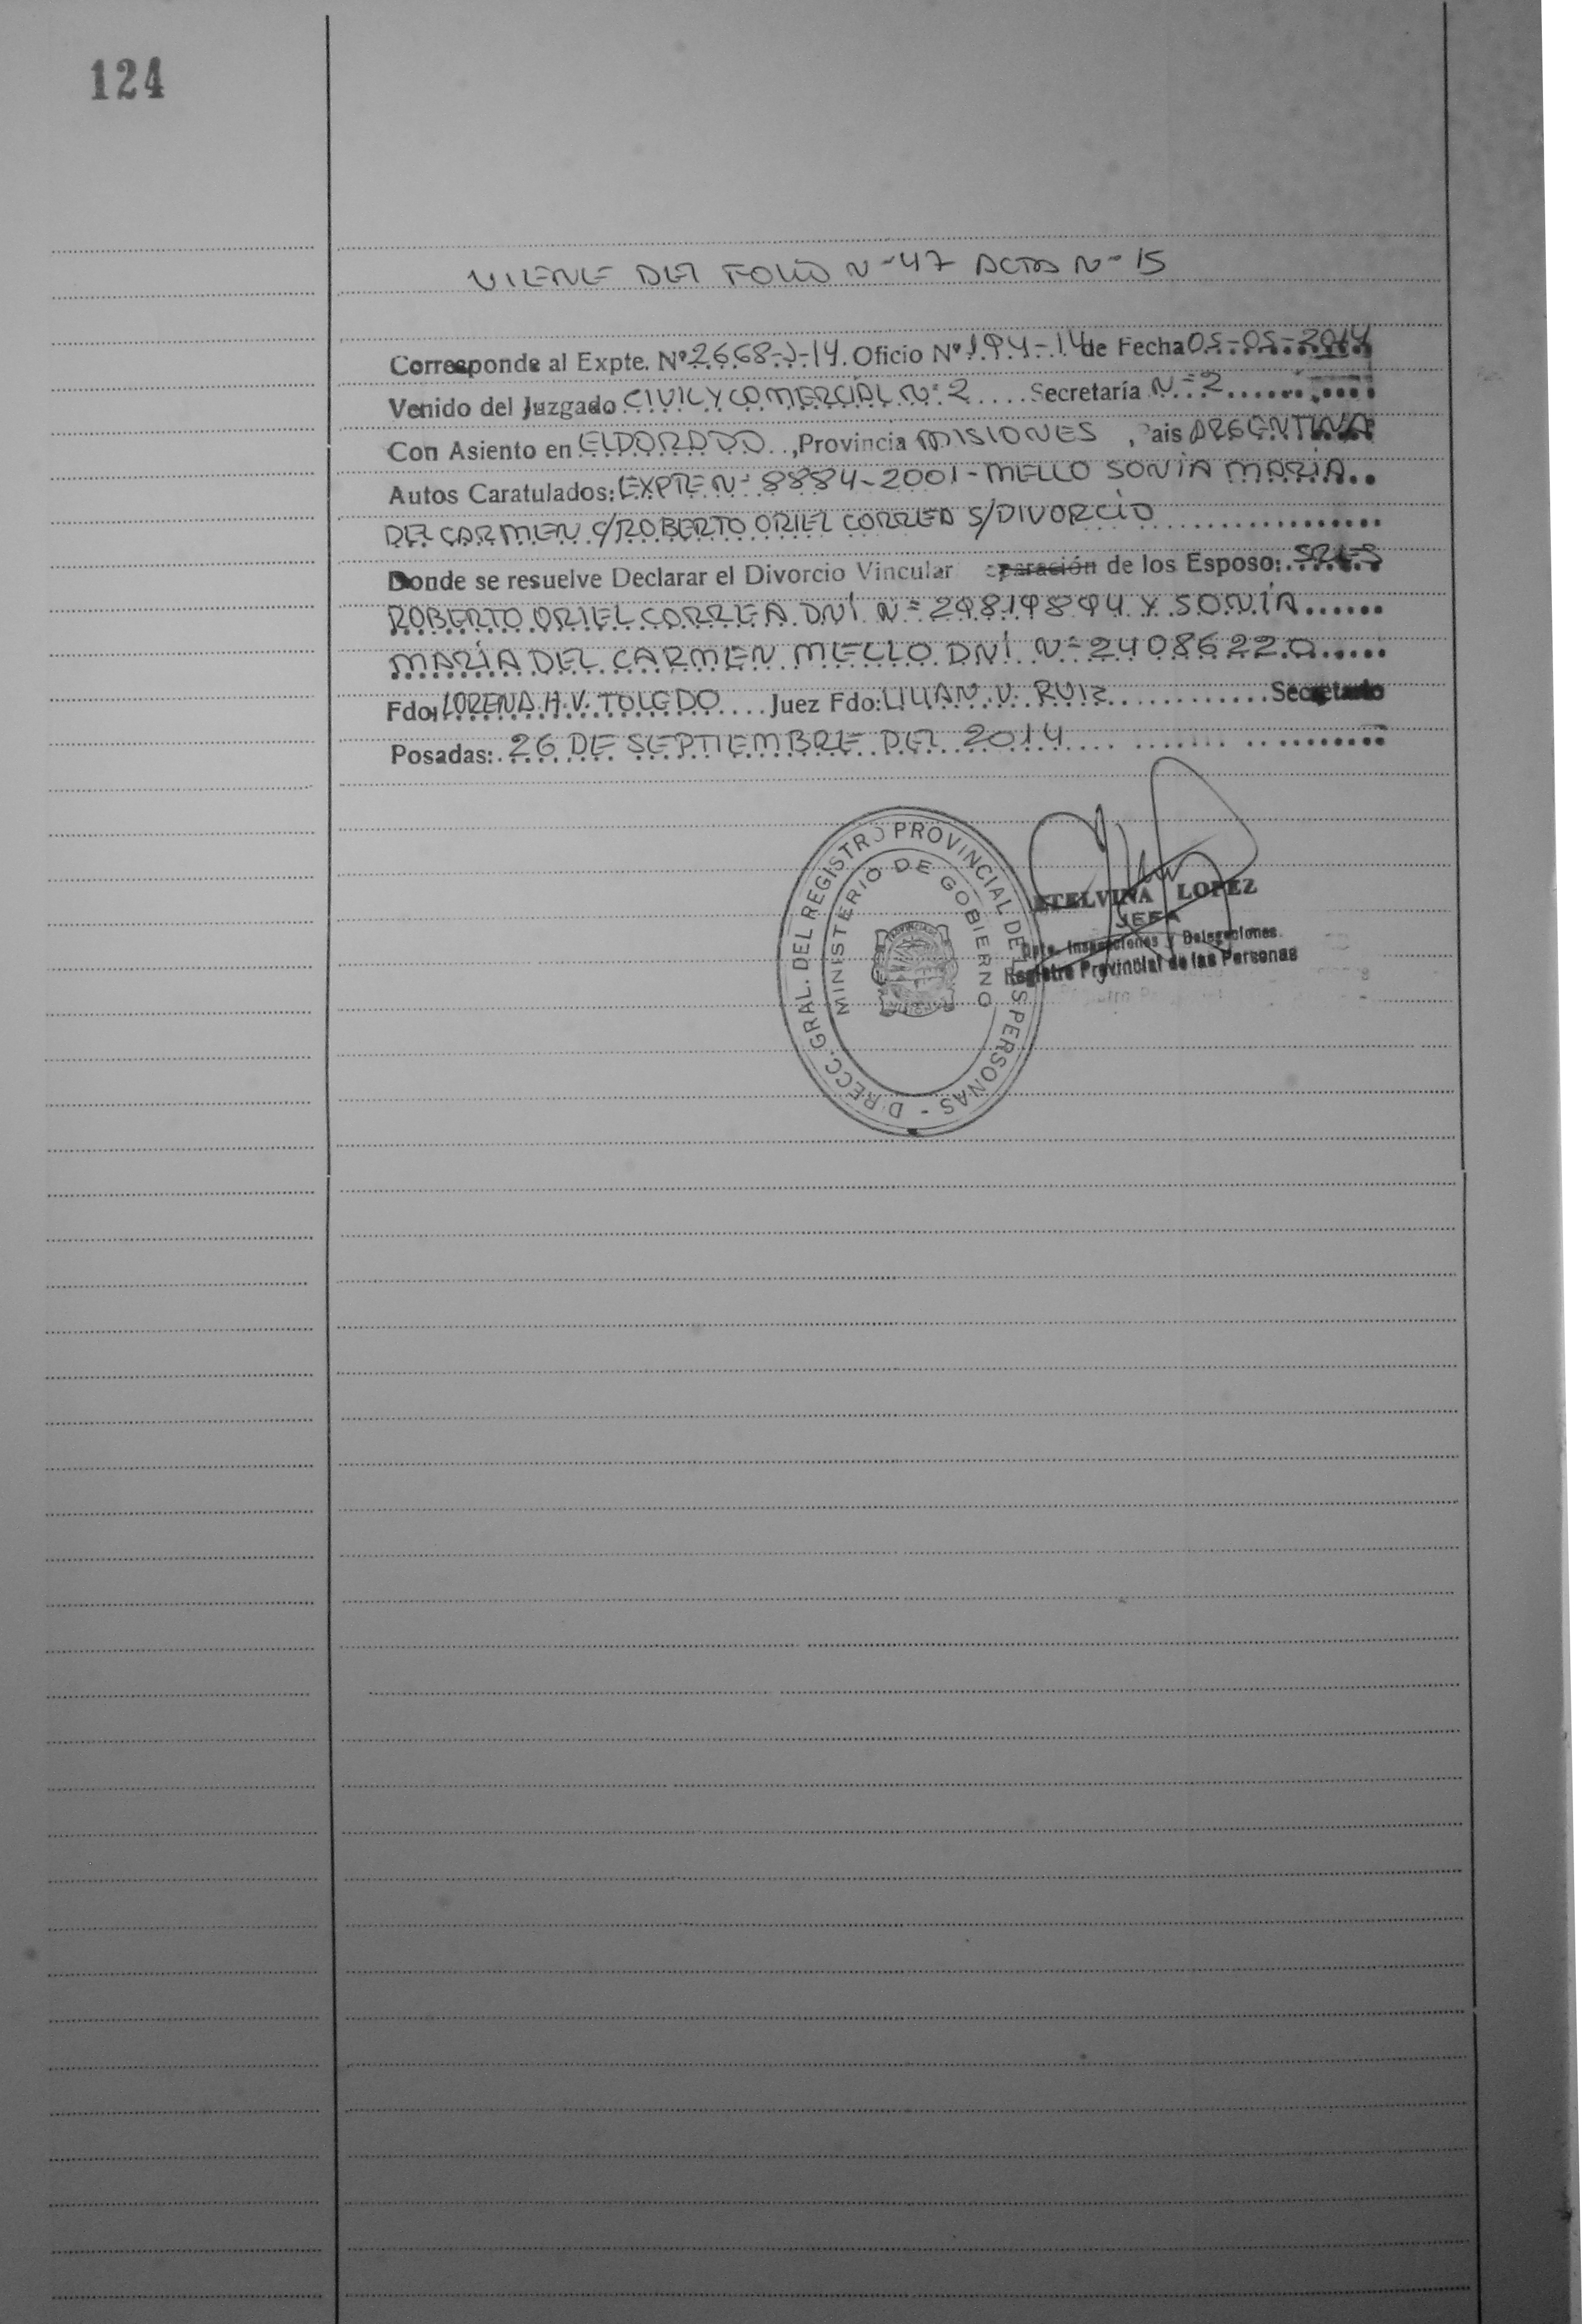 124
VIENE DEL FOLIO N-47 ACTA N-15
Corresponde al Expte. Nº 2668-J-14. Oficio Nº 194-14 de Fecha 05-05-2014
Venido del Juzgado CIVIL Y COMERCIAL Nº 2 .... Secretaría N-2
Con Asiento en ELDORADO.., Provincia MISIONES, Pais ARGENTINA
Autos Caratulados: EXPTE Nº 8884-2001-MELLO SONIA MARÍA..
DEL CARMEN C/ROBERTO ORIEL CORREA S/DIVORCIO
Donde se resuelve Declarar el Divorcio Vincular eparación de los Esposo: SRES
ROBERTO ORIEL CORREA DNÍ Nº 29819894 Y SONIA......
MARÍA DEL CARMEN MELLO DNÍ Nº 24086220.....
Fdo: LORENA H.V. TOLEDO.... Juez Fdo: LILIAN V. RUIZ............ Secretario
Posadas: 26 DE SEPTIEMBRE DEL 2014
DIRECC. GRAL. DEL REGISTRO PROVINCIAL DE LAS PERSONAS -
MINISTERIO DE GOBIERNO
ETELVINA LOPEZ
JEFA
Dpto. Inspecciones y Delegaciones
Registro Provincial de las Personas